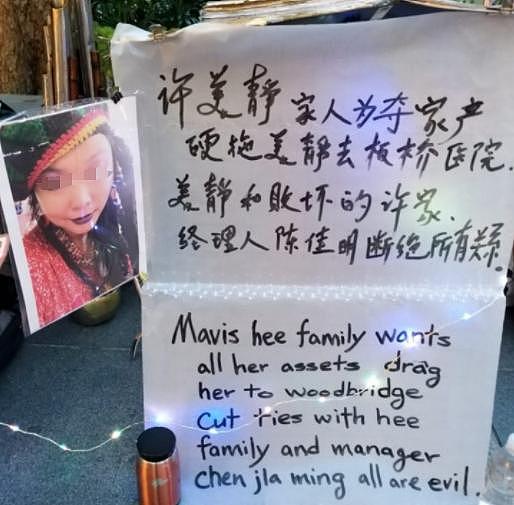 许美静家人为夺家产
硬拖美静去板桥医院.
美静和败坏的许家.
经理人陈佳明断绝所有关系.
Mavis hee family wants
all her assets drag
her to woodbridge
cut ties with hee
family and manager
chen jia ming all are evil.